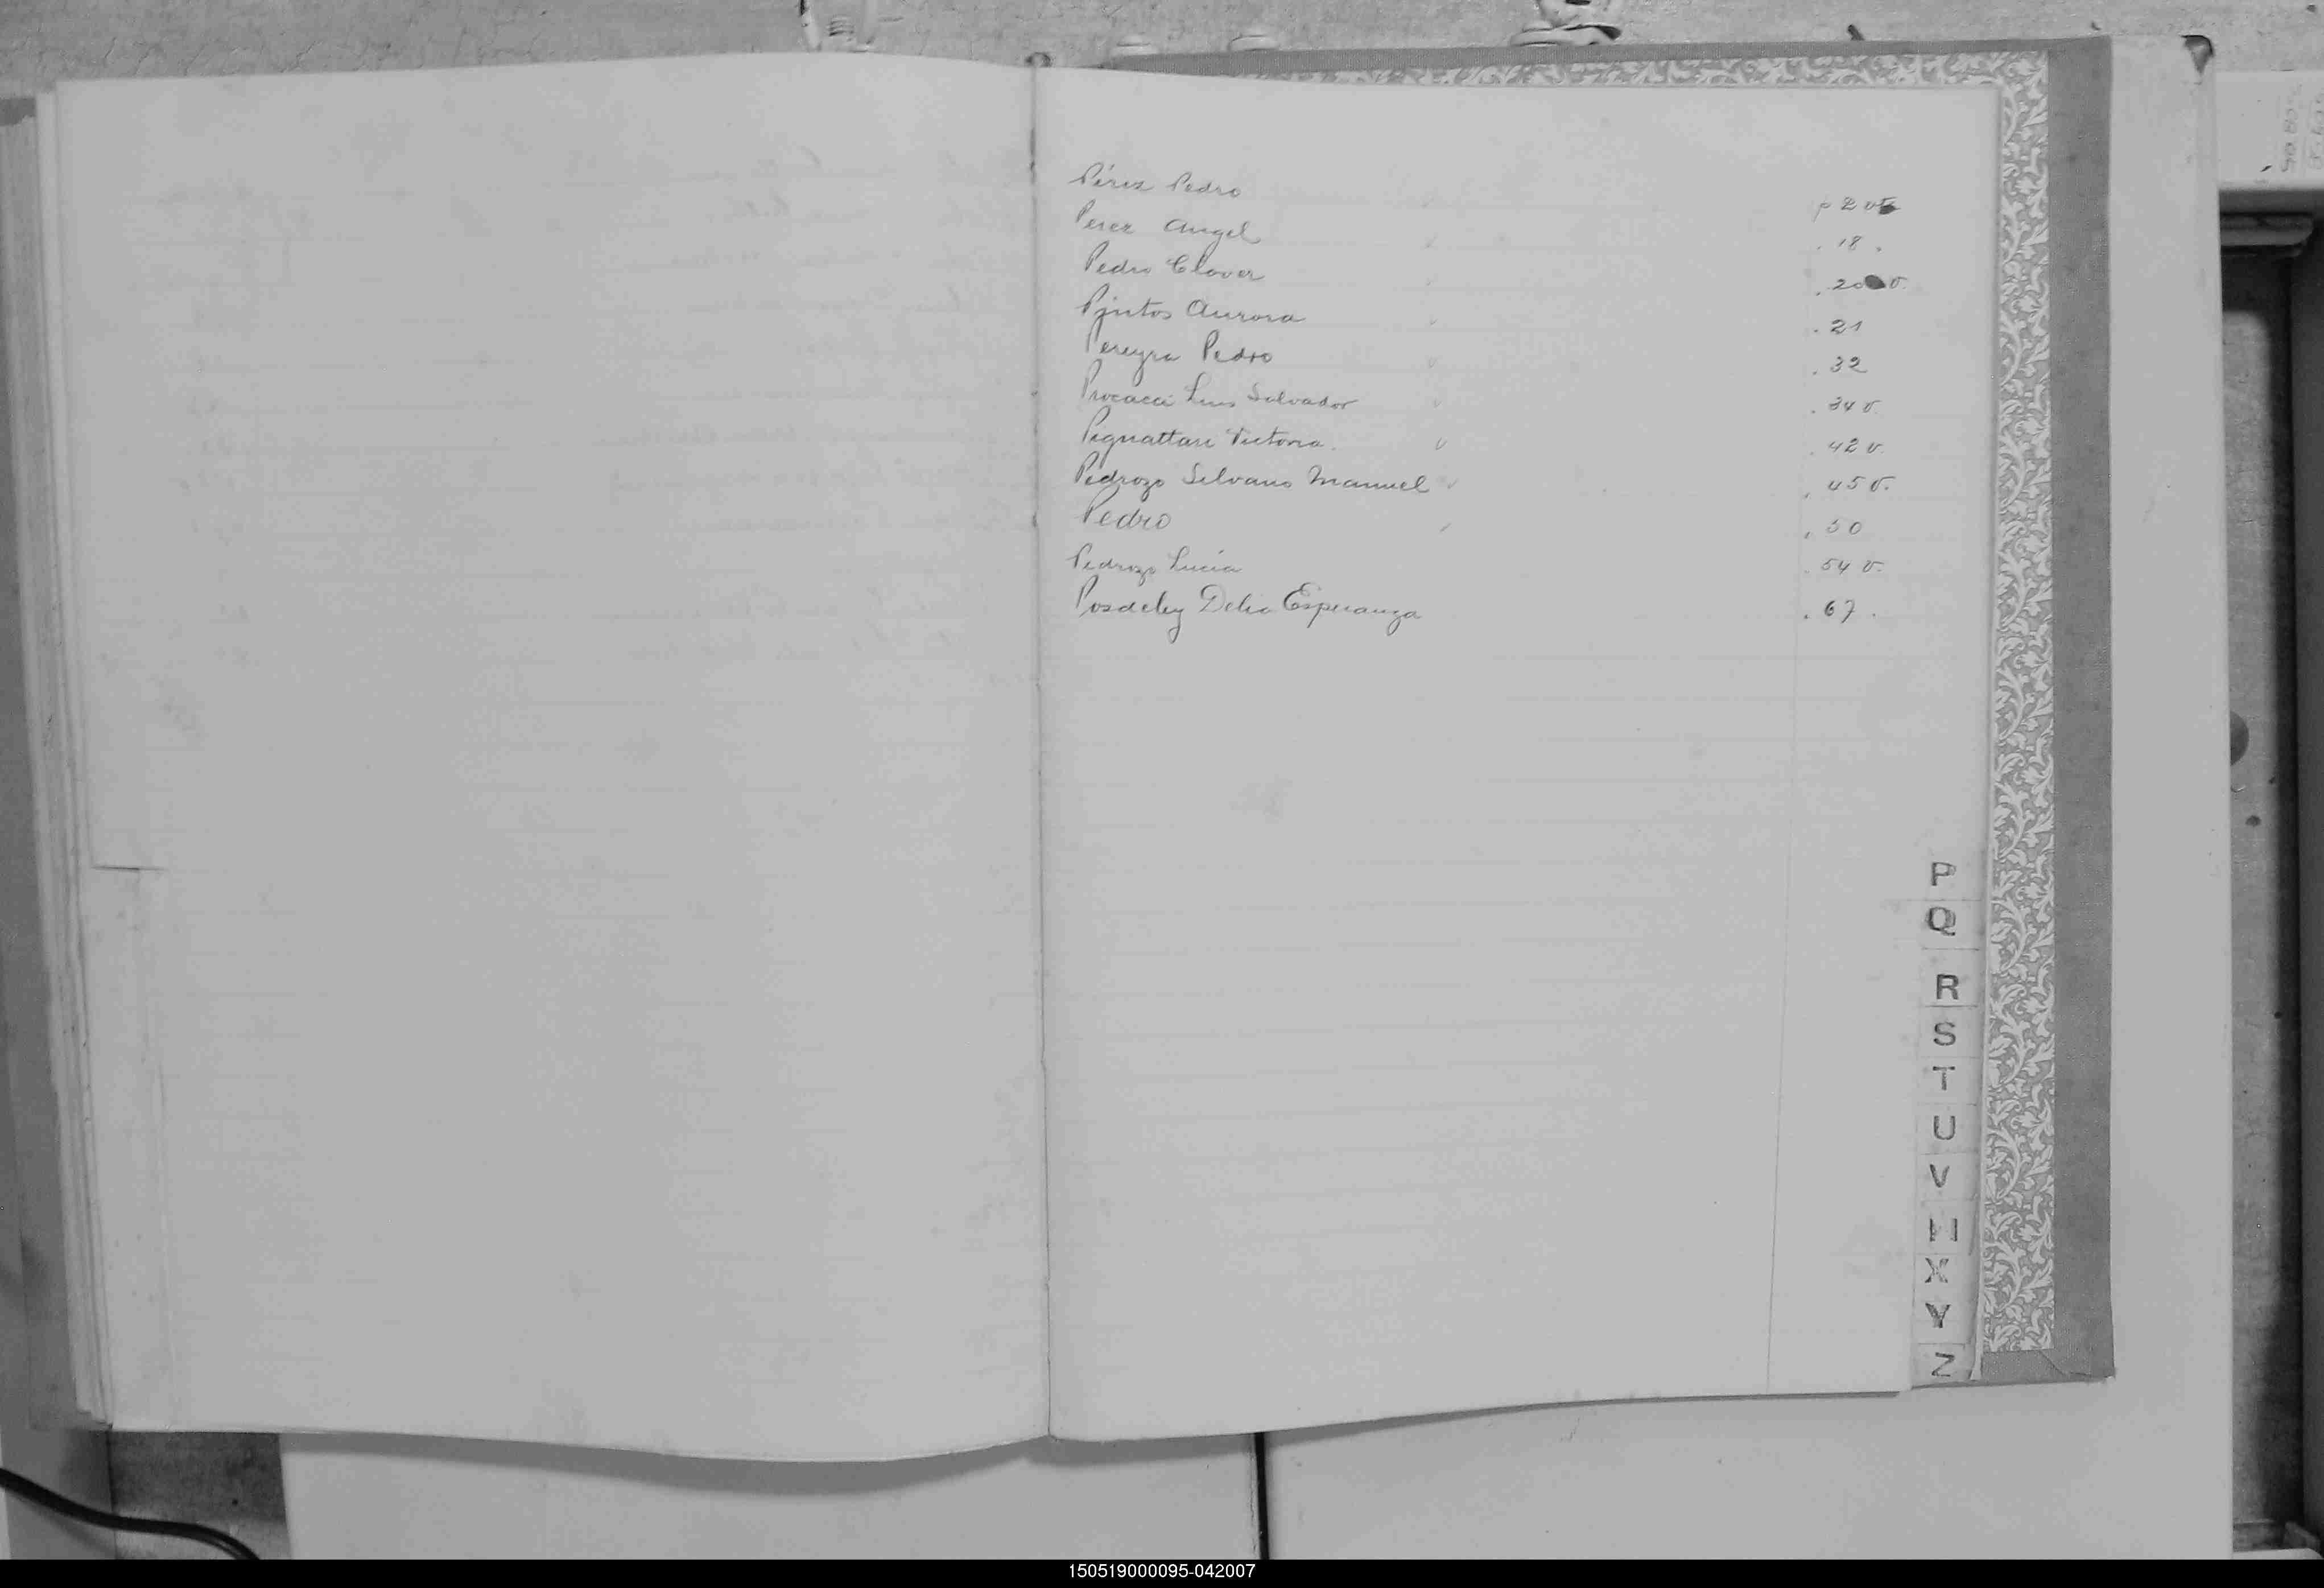 Pérez Pedro p 2 v
Perez Angel . 18 .
Pedro Claver . 20 v.
Pintos Aurora . 21
Pereyra Pedro . 32
Procacci Luis Salvador . 34 v.
Pignattari Victoria . 42 v.
Pedrozo Silvano Manuel . 45 v.
Pedro . 50
Pedrozo Lucía . 54 v.
Delia Esperanza . 67 .
P
Q
R
S
T
U
V
X
Y
Z
150519000095-042007